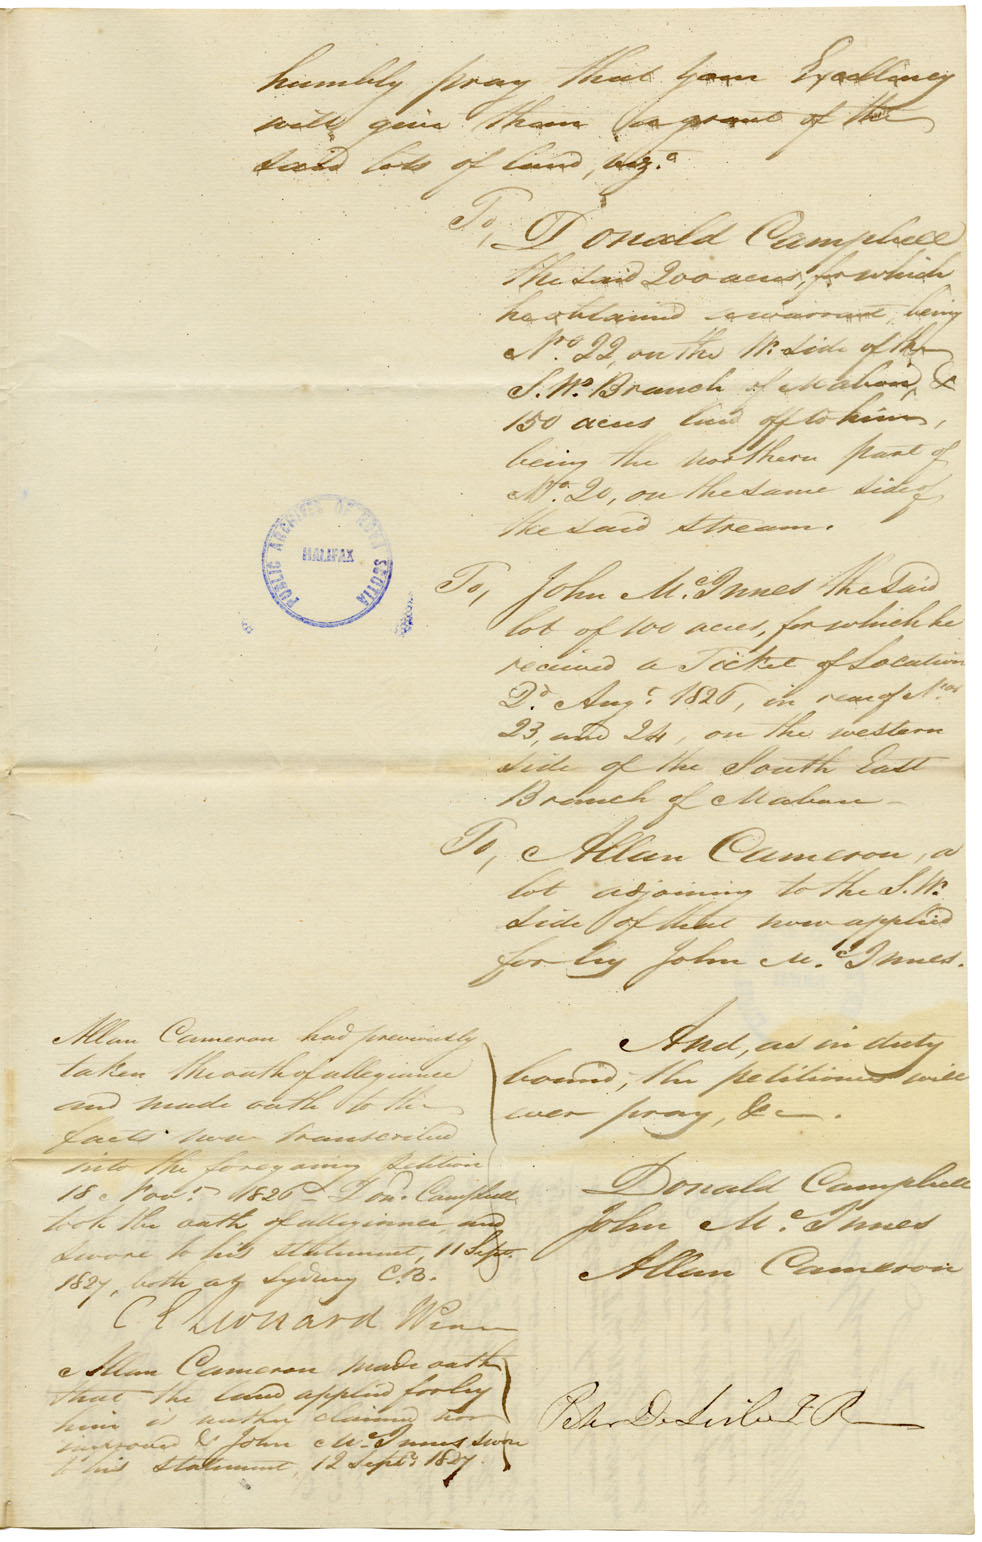 humbly pray that your Excellency
will give them a grant of the
said lots of land, viz.ᵗ
To, Donald Campbell
the said 200 acres, for which
he obtained a warrant, being
Nᵒ 22, on the W. side of the
S. W. Branch of Mabou, &
150 acres laid off to him,
being the northern part of
Nᵒ 20, on the same side of
the said stream.
To, John Mᶜ.Innes the said
lot of 100 acres, for which he
received a Ticket of Location
Dᵈ. Augᵗ. 1826, in rear of Nᵒˢ
23, and 24, on the western
side of the South East
Branch of Mabou —
To, Allan Cameron, a
lot adjoining to the S. W.
side of that now applied
for by John Mᶜ.Innes.
And, as in duty
bound, the petitioners will
ever pray, &c — .
Donald Campbell
John Mᶜ.Innes
Allan Cameron
Allan Cameron had previously
taken the oath of allegiance
and made oath to the
facts now transcribed
into the foregoing petition
18 Novʳ. 1826 — Don. Campbell
took the oath of allegiance, and
swore to his statement, 11 Septʳ.
1827, both at Sydney C.B.
C E Leonard
Allan Cameron made oath
that the land applied for by
him is neither claimed nor
improved & John Mᶜ.Innes swore
to his statement, 12 Septʳ. 1827.
Peter DeLisle J P
PUBLIC ARCHIVES OF NOVA SCOTIA
HALIFAX